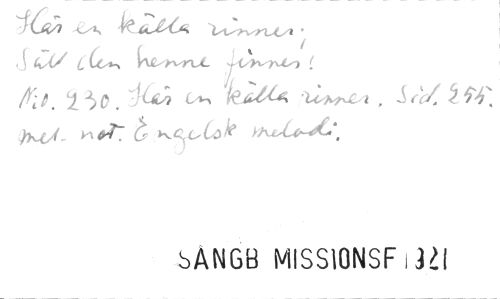 Här en källa rinner;
Säll den henne finner!
No. 230. Här en källa rinner. Sid. 255.
med not. Engelsk melodi.
SÅNGB MISSIONSF 1921